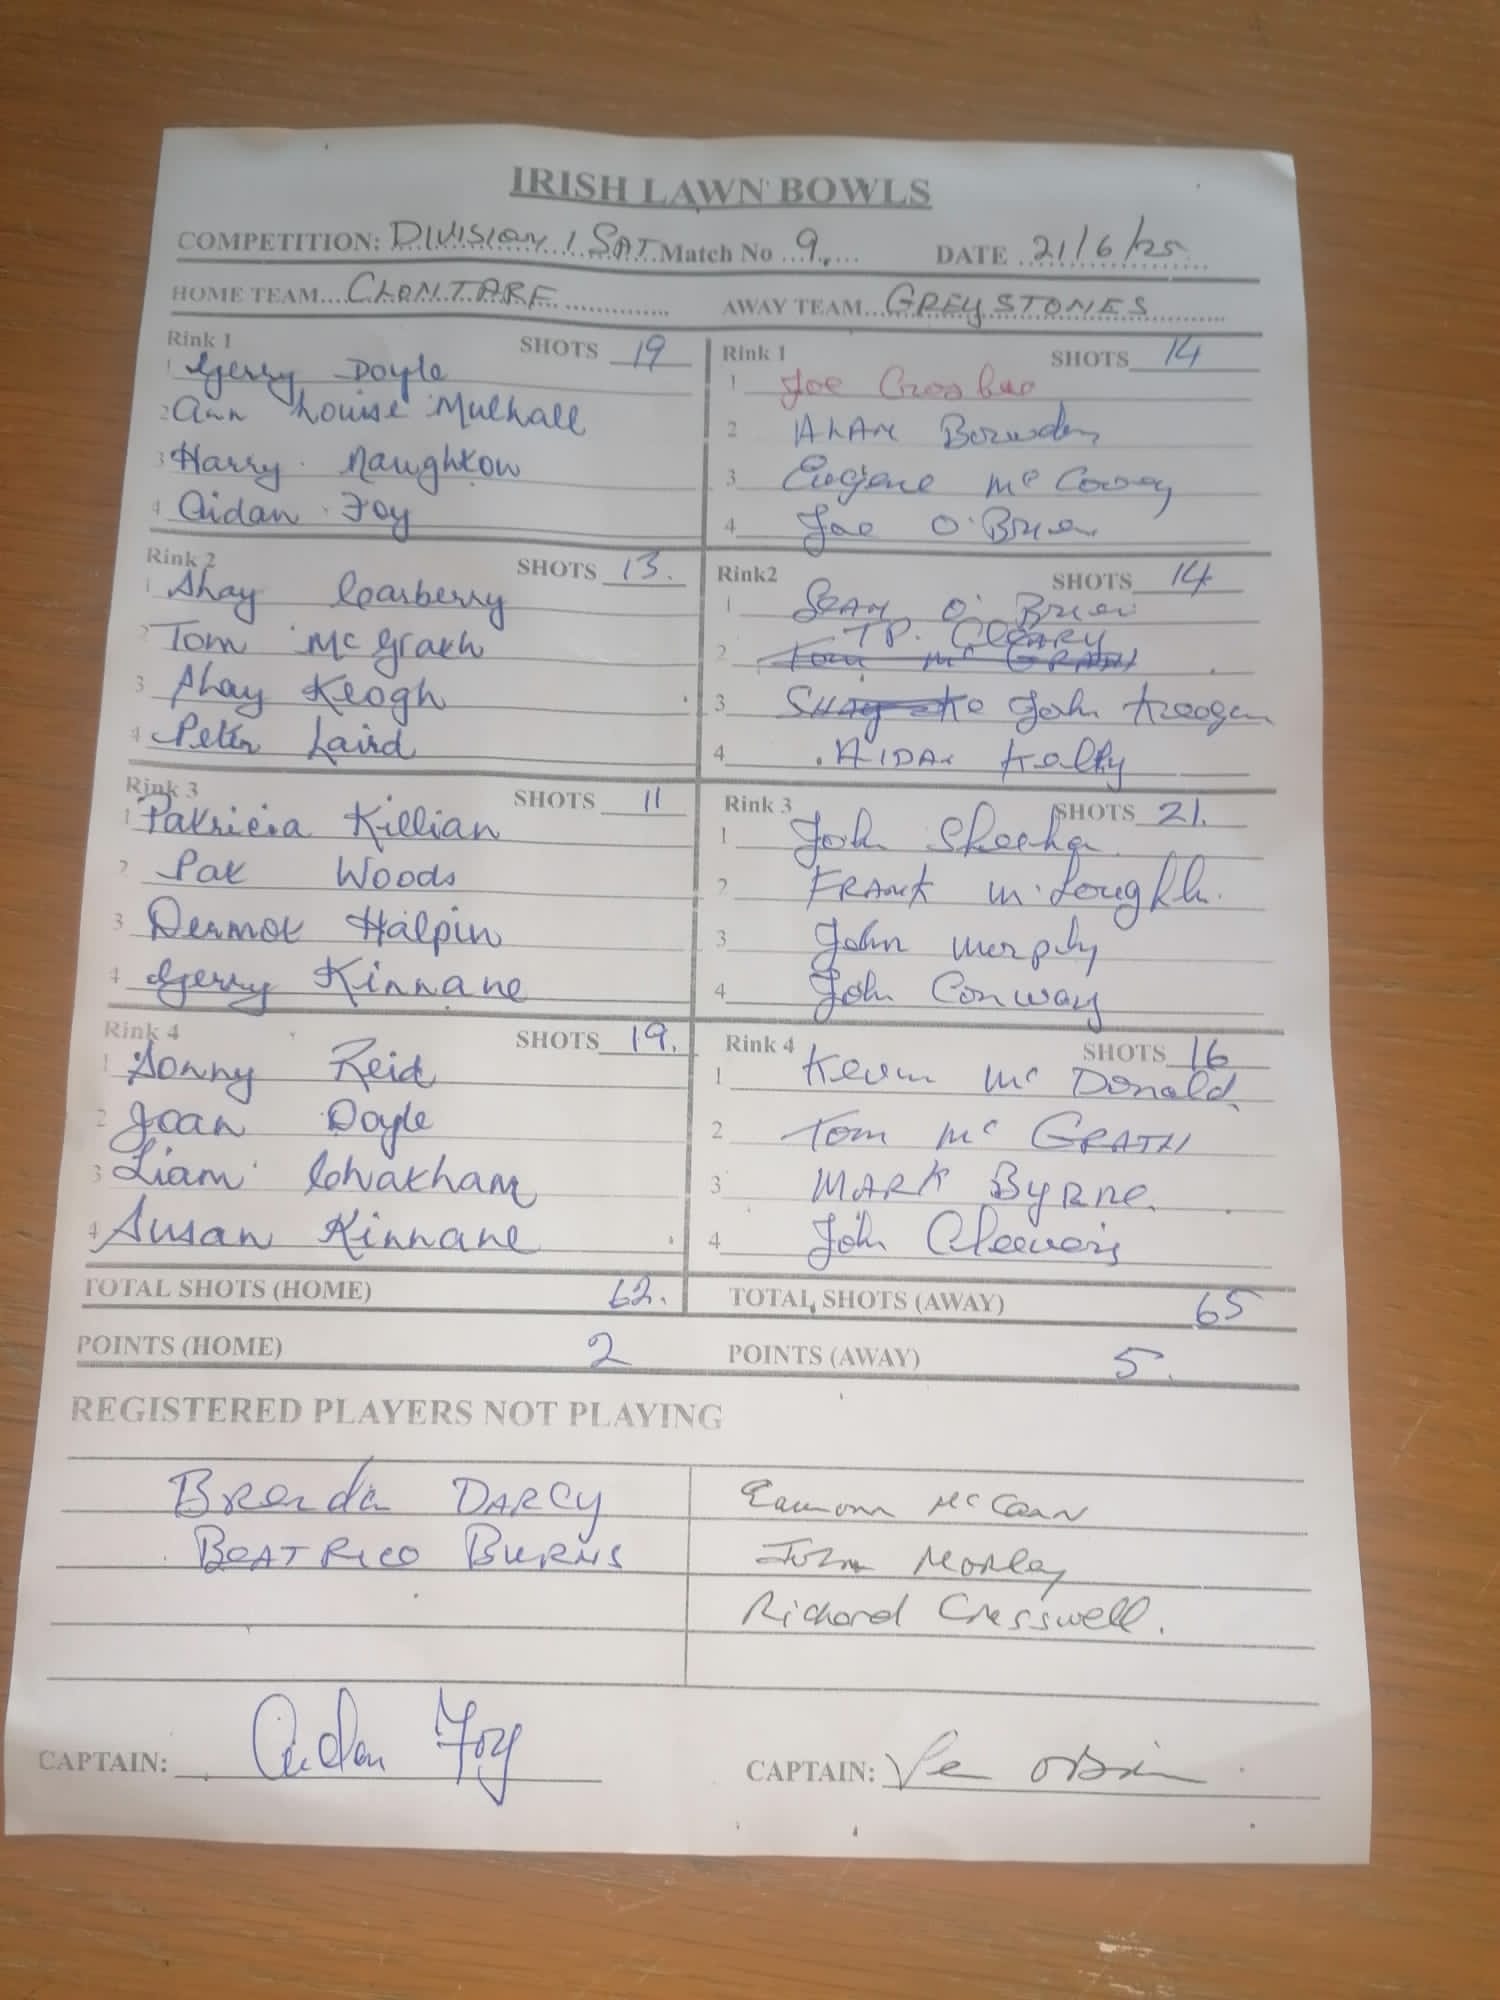 IRISH LAWN BOWLS
COMPETITION: DIVISION 1 SAT Match No 9. DATE 21/6/25
HOME TEAM CLONTARF AWAY TEAM GREYSTONES
Rink 1 SHOTS 19
1 Gerry Doyle
2 Ann Louise Mulhall
3 Harry Naughton
4 Aidan Foy
Rink 1 SHOTS 14
1 Joe
2 ALAN Bowden
3 Eugene Mc
4 Joe O'Brien
Rink 2 SHOTS 13.
1 Shay Carberry
2 Tom McGrath
3 Shay Keogh
4 Peter Laird
Rink2 SHOTS 14
1 SEAN O'Brien
TP. CLEARY
2 Tom Mc GRATH
3 SHAY Ke John Keogan
4 AIDAN Kelly
Rink 3 SHOTS 11
1 Patricia Killian
2 Pat Woods
3 Dermot Halpin
4 Gerry Kinnane
Rink 3 SHOTS 21.
1 John Sheehan
2 FRANK
3 John Murphy
4 John Conway
Rink 4 SHOTS 19.
1 Sonny Reid
2 Joan Doyle
3 Liam Chatham
4 Susan Kinnane
Rink 4 SHOTS 16
1 Kevin Mc Donald
2 Tom Mc GRATH
3 MARK Byrne.
4 John
TOTAL SHOTS (HOME) 62. TOTAL SHOTS (AWAY) 65
POINTS (HOME) 2 POINTS (AWAY) 5.
REGISTERED PLAYERS NOT PLAYING
Brenda DARCY Eamonn McCann
BEATRICE BURNS John Morley
Richard Cresswell.
CAPTAIN: Aidan Foy CAPTAIN: Joe OBrien